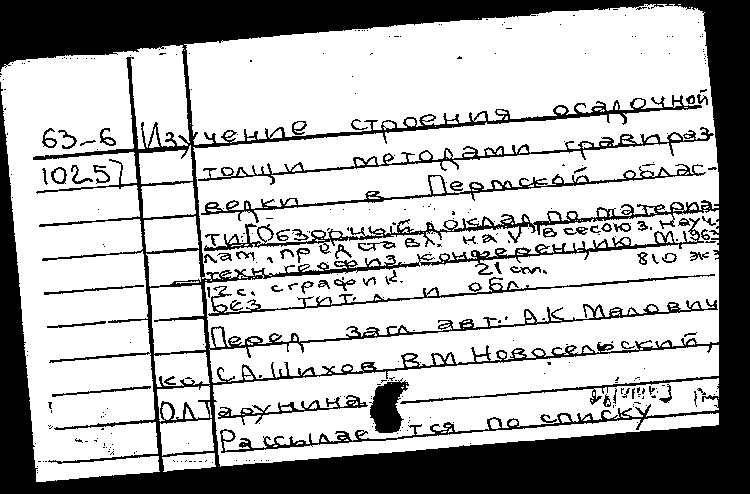 63-6 Изучение строения осадочной
10257 толщи методами гравираз-
ведки в Пермской облас-
ти. [Обзорный доклад по материа-
лам, представл. на V Всесоюз. науч.
техн. геофиз. конференцию. М. 1963
12 с. с график. 21 см. 810 экз
Без тит. л. и обл.
Перед загл. авт.: А.К. Малович
ко, С.А. Шихов, В.М. Новосельский,
О.Л. Тарунина
Рассылается по списку